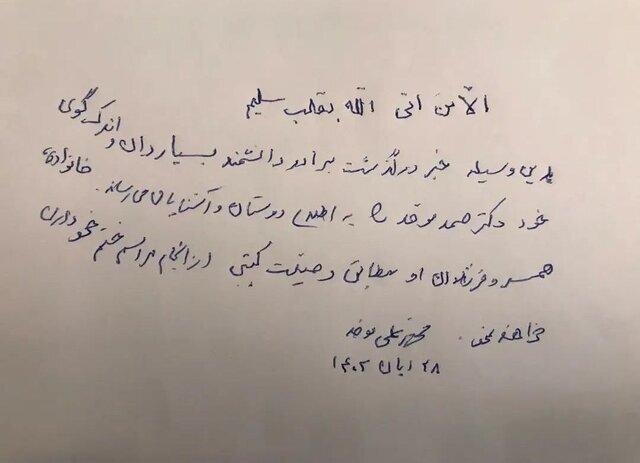 الّا من اتی اللّه بقلب سلیم
بدین وسیله خبر درگذشت برادر دانشمند بسیاردان و اندک‌گوی
خود دکتر صمد موحد را به اطلاع دوستان و آشنایان می‌رساند. خانواده،
همسر و فرزندان او مطابق وصیت کتبی از انجام مراسم ختم خودداری
خواهند نمود. محمدعلی موحد
۲۸ آبان ۱۴۰۲